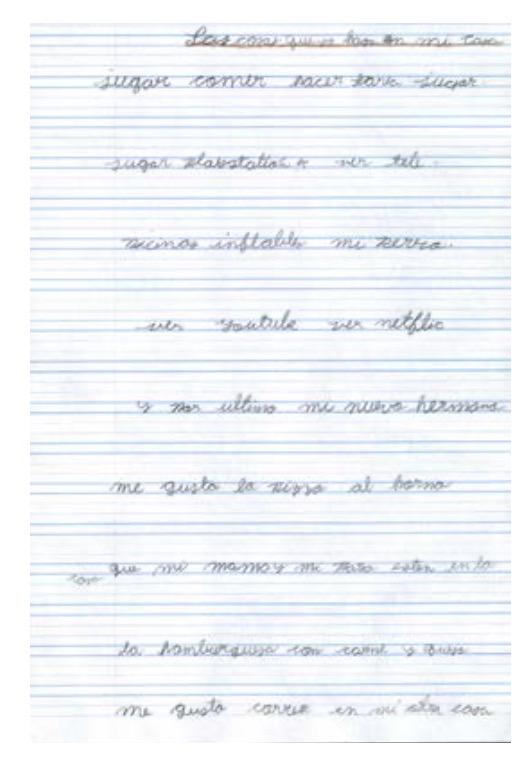 Las cosas que se hase en mi casa
jugar comer hacer tarea jugar.
jugar ver tele.
picinas inflables mi perra.
ver youtube ver netflix
y por ultimo mi nuevo hermano
me gusta la pizza al horno
que mi mama y mi papa esten en la
casa
la hamburguesa con carne y queso
me gusta correr en mi otra casa